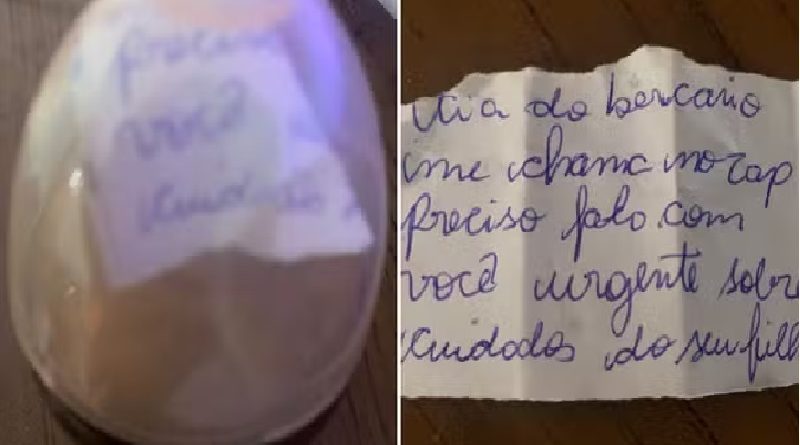 preciso
você
cuidados
tia do bercario
me chama no zap
preciso falo.com
você urgente sobre
cuidados do seu filh